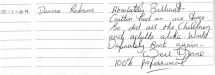 Denise Robson Absolutely Brilliant
Caitlin had an ace time
So did all the Children
and adults alike. Would
Definately Book again.
Well Done
100% professional